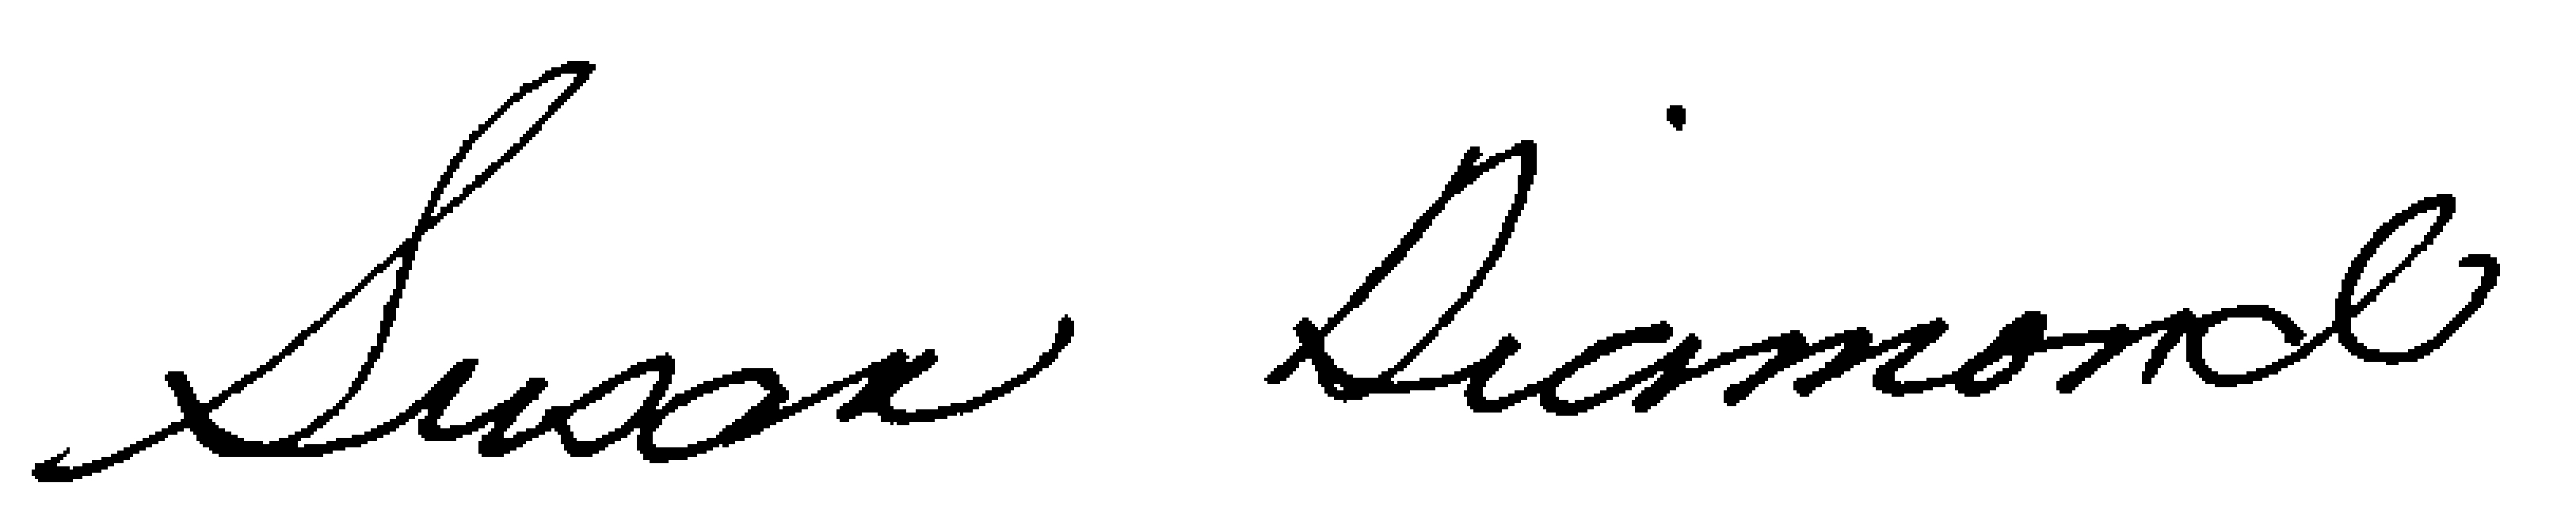 Susan Diamond